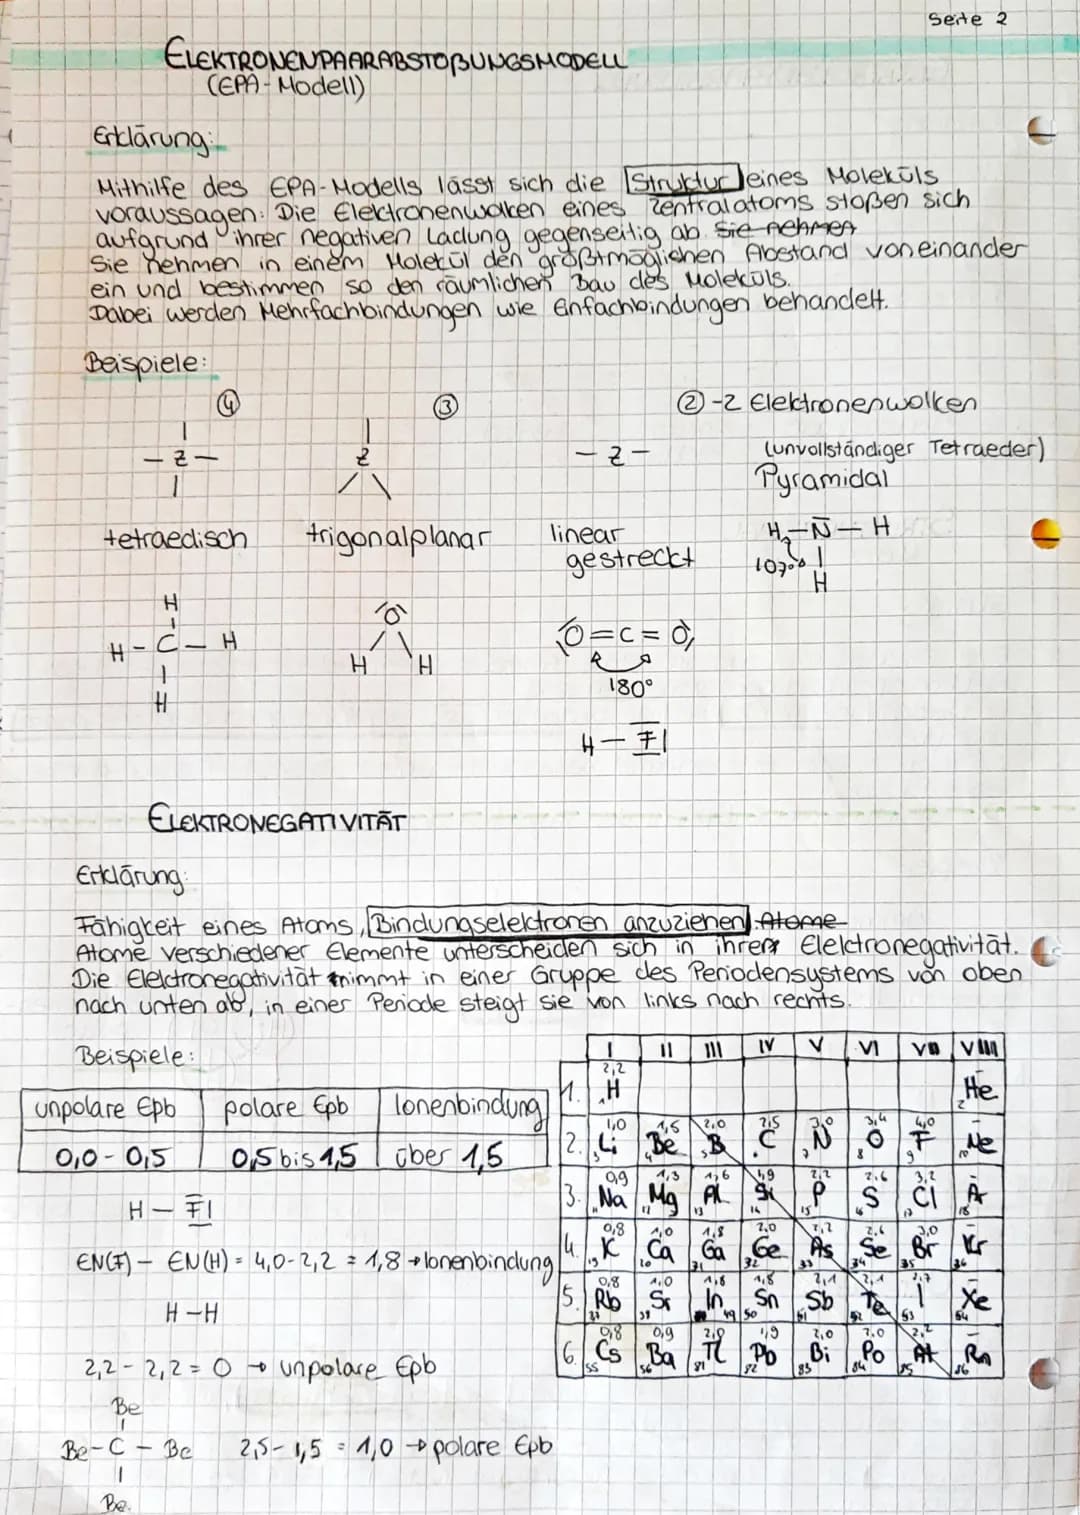 Seite 2
ELEKTRONENPAARABSTOßUNGSMODELL
(EPA-Modell)
Erklärung:
Mithilfe des EPA-Modells lässt sich die Struktur eines Moleküls
voraussagen. Die Elektronenwolken eines Zentralatoms stoßen sich
aufgrund ihrer negativen Ladung gegenseitig ab. Sie nehmen
Sie nehmen in einem Molekül den größtmöglichen Abstand voneinander
ein und bestimmen so den räumlichen Bau des Moleküls.
Dabei werden Mehrfachbindungen wie Einfachbindungen behandelt.
Beispiele:
④ ③ ② - 2 Elektronenwolken
– Z – Z – Z – (unvollständiger Tetraeder)
Pyramidal
tetraedisch trigonalplanar linear gestreckt
H – N – H
107°
H
H
H – C – H
H
O
H H
O = C = O
180°
H – F|
ELEKTRONEGATIVITÄT
Erklärung:
Fähigkeit eines Atoms, Bindungselektronen anzuziehen. Atome
Atome verschiedener Elemente unterscheiden sich in ihrer Elektronegativität.
Die Elektronegativität nimmt in einer Gruppe des Periodensystems von oben
nach unten ab, in einer Periode steigt sie von links nach rechts.
Beispiele:
unpolare Epb polare Epb Ionenbindung
0,0 - 0,5 0,5 bis 1,5 über 1,5
H – F|
EN(F) – EN(H) = 4,0 - 2,2 = 1,8 → Ionenbindung
H – H
2,2 - 2,2 = 0 → unpolare Epb
Be
Be – C – Be 2,5 - 1,5 = 1,0 → polare Epb
Be
I II III IV V VI VII VIII
2,2
1. 1 H 2 He
1,0 1,5 2,0 2,5 3,0 3,4 4,0 –
2. 3 Li 4 Be 5 B C 7 N 8 O 9 F 10 Ne
0,9 1,3 1,6 1,9 2,2 2,6 3,2 –
3. Na 12 Mg 13 Al 14 Si 15 P 16 S 17 Cl 18 Ar
0,8 1,0 1,8 2,0 2,2 2,6 3,0 –
4. 19 K 20 Ca 31 Ga 32 Ge 33 As 34 Se 35 Br 36 Kr
0,8 1,0 1,8 1,8 2,1 2,1 2,7
5. 37 Rb 38 Sr 49 In 50 Sn 51 Sb 52 Te 53 I 54 Xe
0,8 0,9 2,0 1,9 2,0 2,0 2,2 –
6. 55 Cs 56 Ba 81 Tl 82 Pb 83 Bi 84 Po 85 At 86 Rn